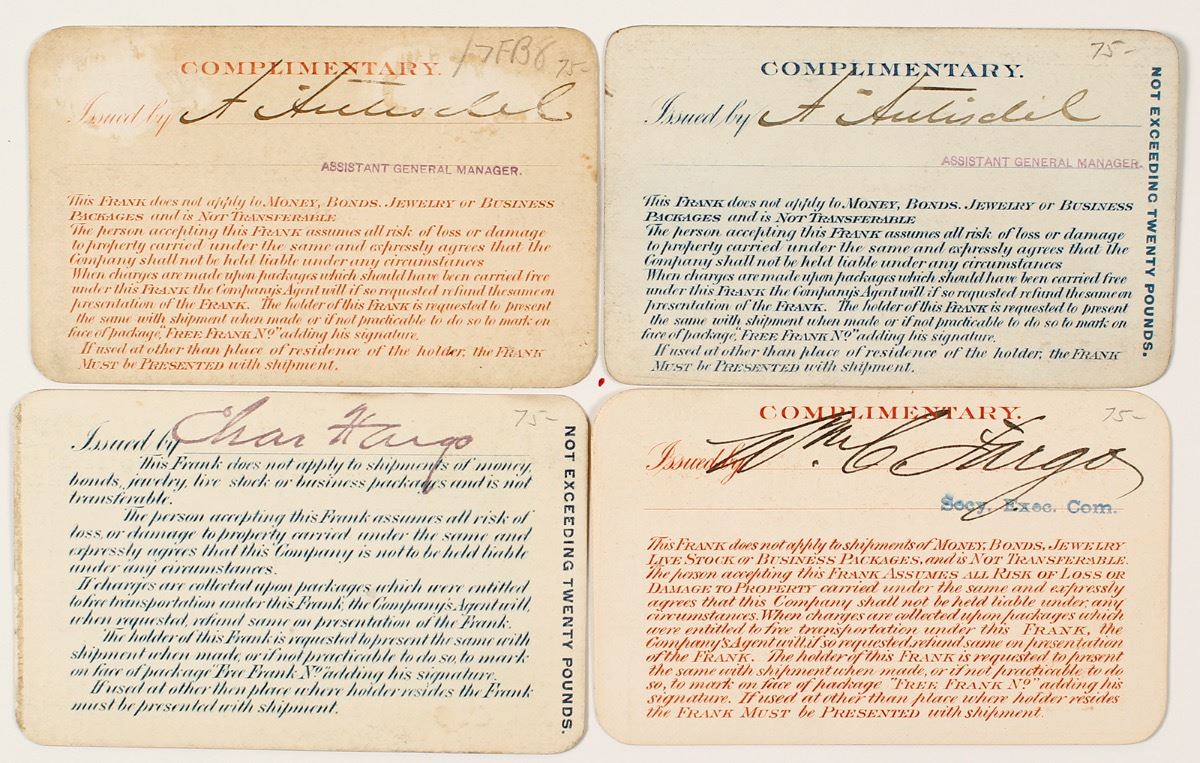 COMPLIMENTARY.
17FB6
75-
Issued by A. Antisdel
ASSISTANT GENERAL MANAGER.
This FRANK does not apply to MONEY, BONDS, JEWELRY OR BUSINESS
PACKAGES and is NOT TRANSFERABLE
The person accepting this FRANK assumes all risk of loss or damage
to property carried under the same and expressly agrees that the
Company shall not be held liable under any circumstances
When charges are made upon packages which should have been carried free
under this FRANK the Company's Agent will if so requested refund the same on
presentation of the FRANK. The holder of this FRANK is requested to present
the same with shipment when made or if not practicable to do so to mark on
face of package, "FREE FRANK No." adding his signature.
If used at other than place of residence of the holder, the FRANK
MUST be PRESENTED with shipment.
75-
COMPLIMENTARY.
Issued by A. Antisdel
ASSISTANT GENERAL MANAGER.
This FRANK does not apply to MONEY, BONDS, JEWELRY OR BUSINESS
PACKAGES and is NOT TRANSFERABLE
The person accepting this FRANK assumes all risk of loss or damage
to property carried under the same and expressly agrees that the
Company shall not be held liable under any circumstances
When charges are made upon packages which should have been carried free
under this FRANK the Company's Agent will if so requested refund the same on
presentation of the FRANK. The holder of this FRANK is requested to present
the same with shipment when made or if not practicable to do so to mark on
face of package, "FREE FRANK No." adding his signature.
If used at other than place of residence of the holder, the FRANK
MUST be PRESENTED with shipment.
NOT EXCEEDING TWENTY POUNDS.
75-
Issued by Chas Fargo
This Frank does not apply to shipments of money,
bonds, jewelry, live stock or business packages and is not
transferable.
The person accepting this Frank assumes all risk of
loss, or damage to property carried under the same and
expressly agrees that this Company is not to be held liable
under any circumstances.
If charges are collected upon packages, which were entitled
to free transportation under this Frank, the Company's Agent will,
when requested, refund same on presentation of the Frank.
The holder of this Frank is requested to present the same with
shipment when made, or if not practicable to do so, to mark
on face of package "Free Frank No." adding his signature.
If used at other then place where holder resides the Frank
must be presented with shipment.
NOT EXCEEDING TWENTY POUNDS.
COMPLIMENTARY.
75-
Issued by Wm. C. Fargo
Secy. Exec. Com.
This FRANK does not apply to shipments of MONEY, BONDS, JEWELRY
LIVE STOCK OR BUSINESS PACKAGES, and is NOT TRANSFERABLE.
The person accepting this FRANK ASSUMES ALL RISK OF LOSS OR
DAMAGE TO PROPERTY carried under the same and expressly
agrees that this Company shall not be held liable under any
circumstances. When charges are collected upon packages which
were entitled to free transportation under this FRANK, the
Company's Agent will, if so requested, refund same on presentation
of the FRANK. The holder of this FRANK is requested to present
the same with shipment when made, or if not practicable to do
so, to mark on face of package "FREE FRANK No." adding his
signature. If used at other than place where holder resides
the FRANK MUST be PRESENTED with shipment.